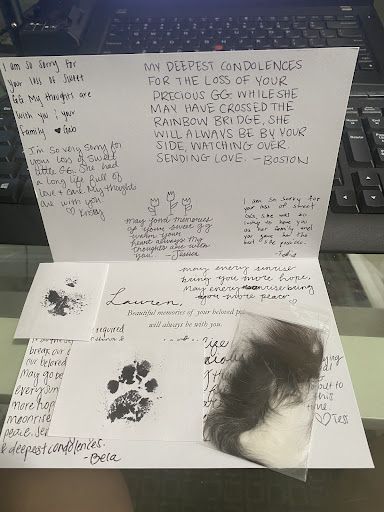 I am so sorry for
your loss of sweet
GG. My thoughts are
with you & your
family ♥ Gab
MY DEEPEST CONDOLENCES
FOR THE LOSS OF YOUR
PRECIOUS GG. WHILE SHE
MAY HAVE CROSSED THE
RAINBOW BRIDGE, SHE
WILL ALWAYS BE BY YOUR
SIDE, WATCHING OVER.
SENDING LOVE. - BOSTON
I'm so sorry for
your loss of sweet
little GG. She had
a long life full of
love & care. My thoughts
are with you.
♡ Kristy
May fond memories
of your sweet gg
warm your
heart always. My
thoughts are with
you.
I am so sorry for
your loss of sweet
GG, she was so
lucky to have you
as her family and
you gave her the
best life possible.
may every sunrise
bring you more hope,
may every moonrise bring
you more peace.
Lauren,
Beautiful memories of your beloved
will always be with you.
required
break our
our beloved
may go be
every sun
more hope
moonrise
peace.
& deepest condolences.
-Bela
out to
this
time
♡ Tess